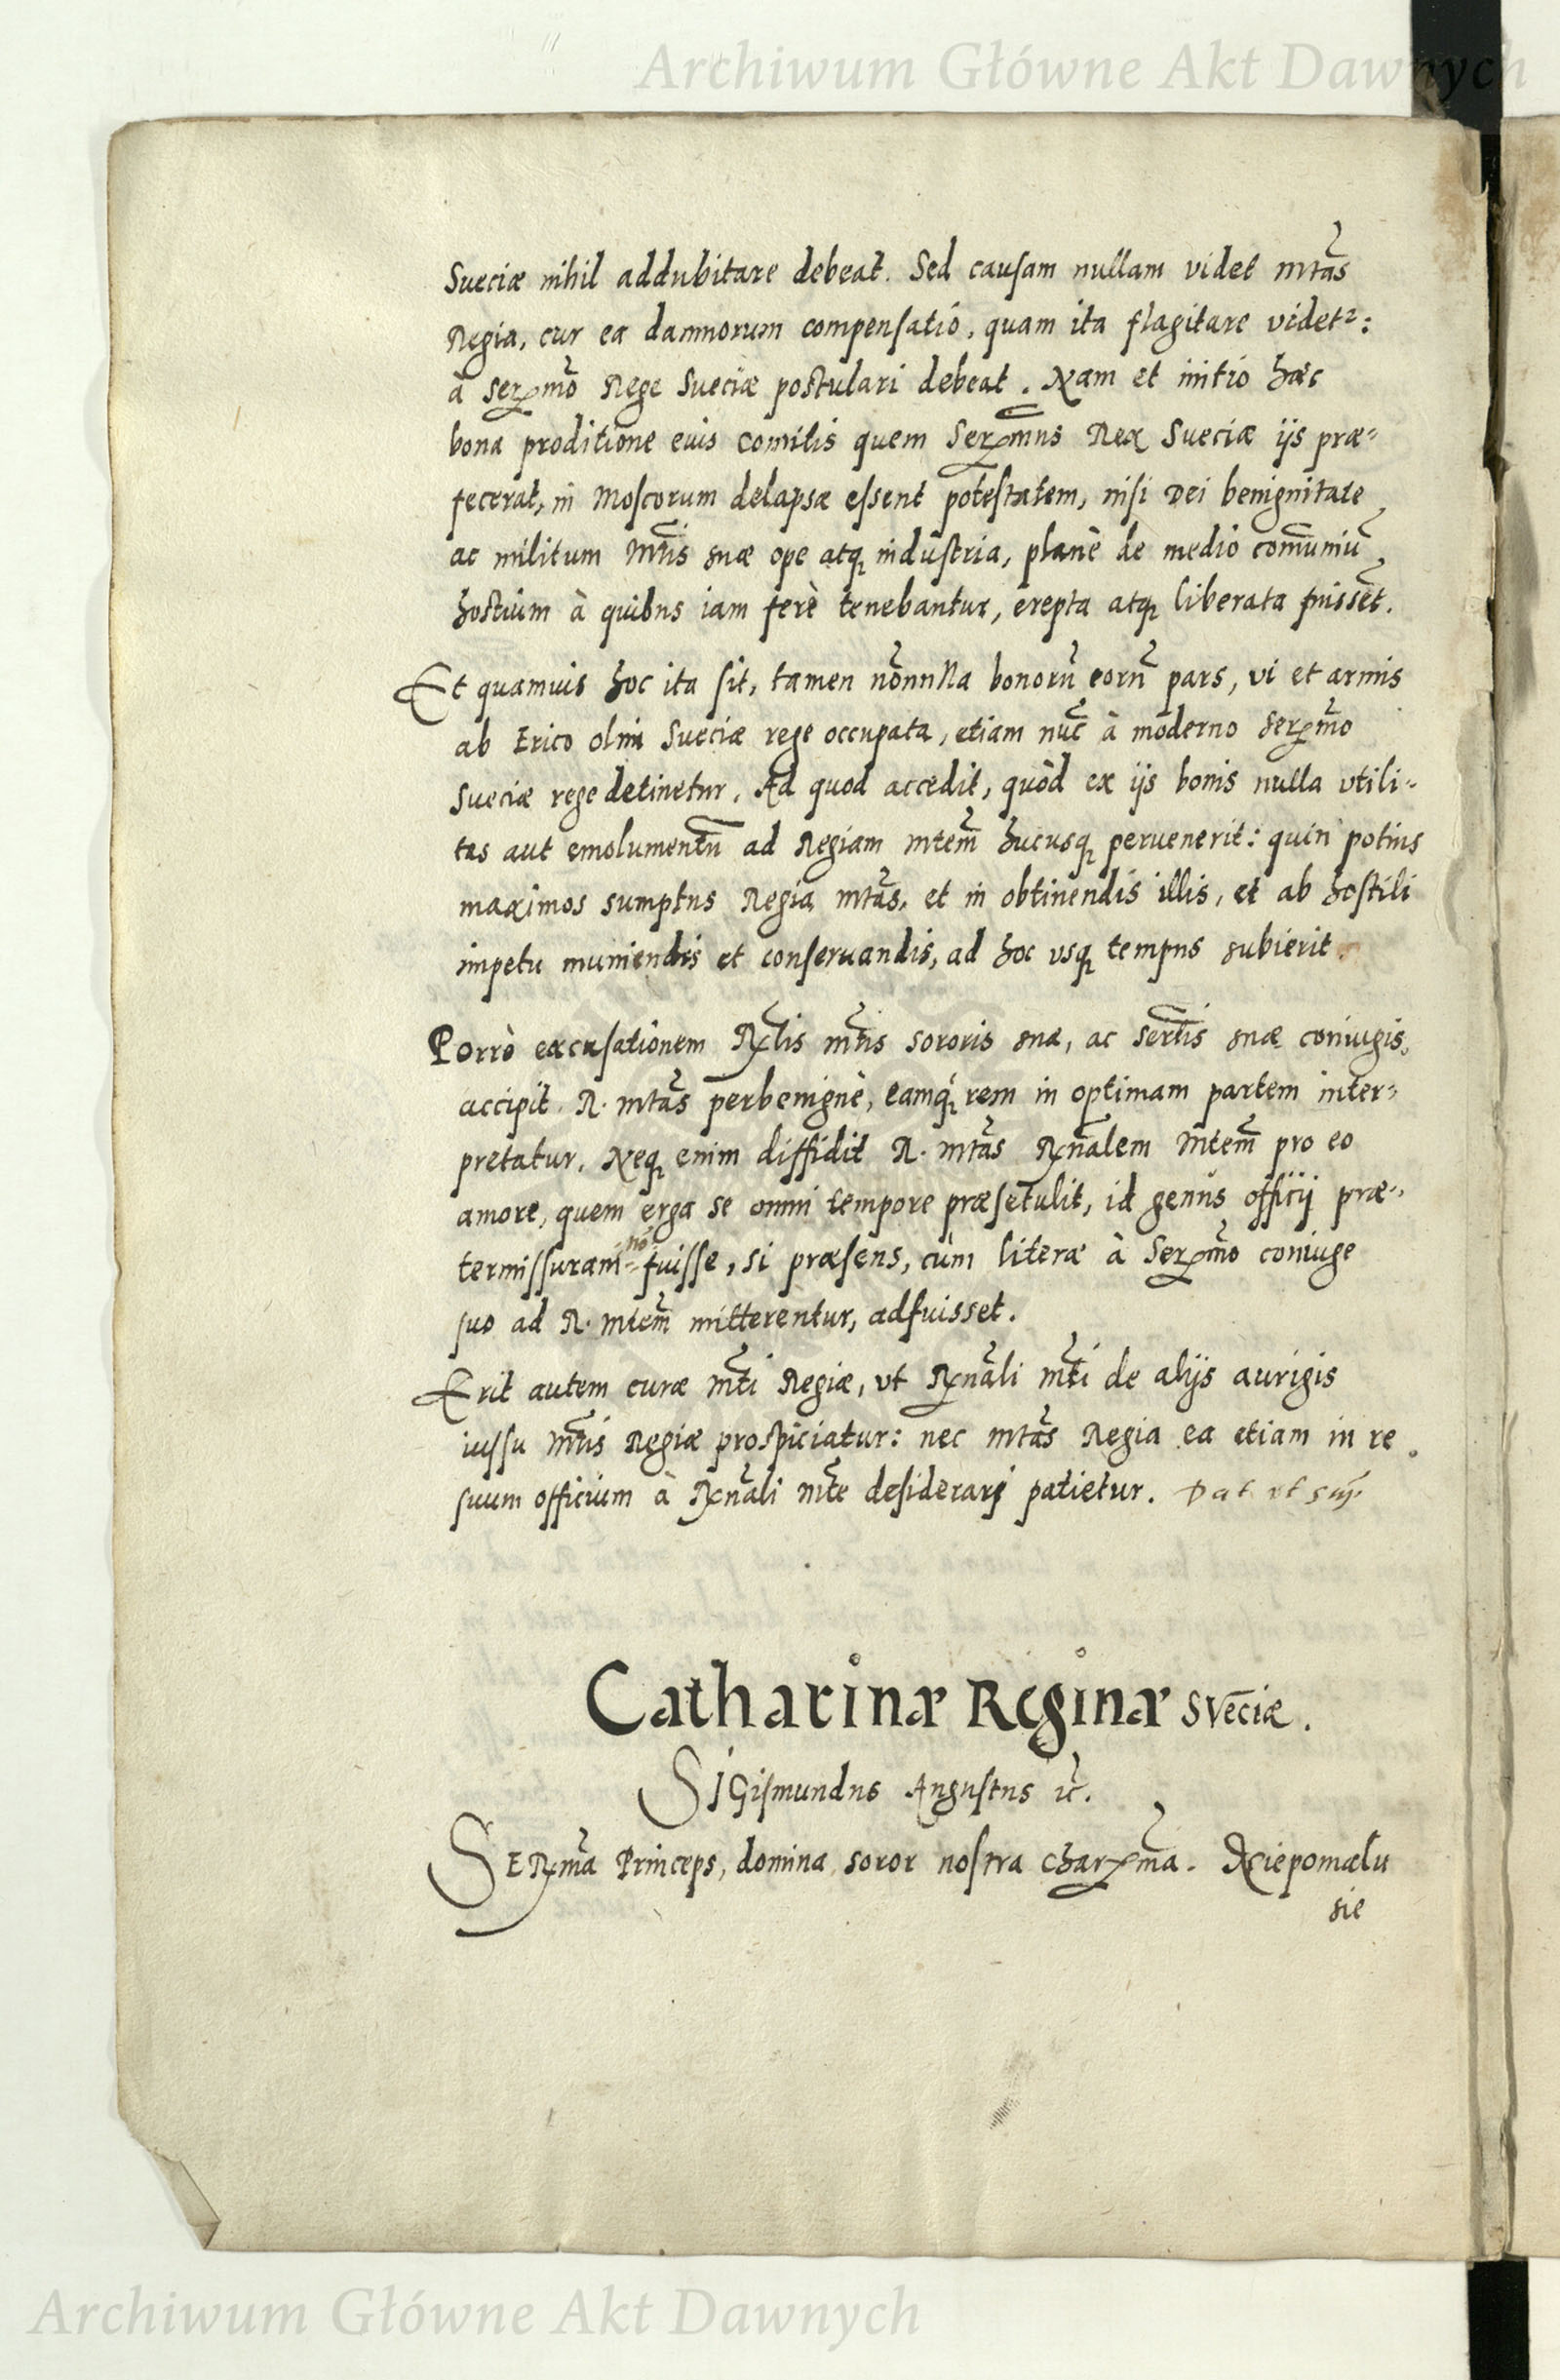 Archiwum Główne Akt Dawnych
Sueciæ nihil addubitare debeat. Sed causam nullam videt mtãs
Regia, cur ea damnorum compensatio, quam ita flagitare videtr:
à Sermõ Rege Sueciæ postulari debeat. Nam et initio hæc
bona proditione euis Comitis quem Sermns Rex Sueciæ ijs præ-
fecerat, in Moscorum delapsæ essent potestatem, nisi Dei benignitate
ac militum Mtis suæ ope atq industria, planè de medio comuniũ
hostium à quibus iam ferè tenebantur, erepta atq liberata fuissẽt.
Et quamuis hoc ita sit, tamen nõnnlla bonorũ eorũ pars, vi et armis
ab Erico olim Sueciæ rege occupata, etiam nũc à moderno Sermõ
Sueciæ rege detinetur. Ad quod accedit, quòd ex ijs bonis nulla vtili-
tas aut emolumentũ ad Regiam mtem̃ hucusq peruenerit: quin potius
maximos sumptus Regia mtãs, et in obtinendis illis, et ab hostili
impetu muniendis et conseruandis, ad hoc vsq tempus subierit.
Porrò excusationem Rlis mtis sororis suæ, ac Sertis suæ coniugis,
accipit R. mtãs perbenignè, eamq́ rem in optimam partem inter-
pretatur. Neq enim diffidit R. mtãs Rnalem Mtem̃ pro eo
amore, quem erga se omni tempore præsetulit, id genus officij præ-
nõ
termissuram fuisse, si præsens, cùm literæ à Sermõ coniuge
suo ad R. mtem̃ mitterentur, adfuisset.
Erit autem curæ mti Regiæ, vt Rnali mti de alijs aurigis
iussu Mtis Regiæ prospiciatur: nec mtãs Regia ea etiam in re
suum officium à Rnali mte desiderari patietur. Dat vt sup
Catharinæ Reginæ Sveciæ.
Sigismundus Augustus ꝛc̃.
Serma Princeps, domina soror nostra charma. Niepomalu
sie
Archiwum Główne Akt Dawnych